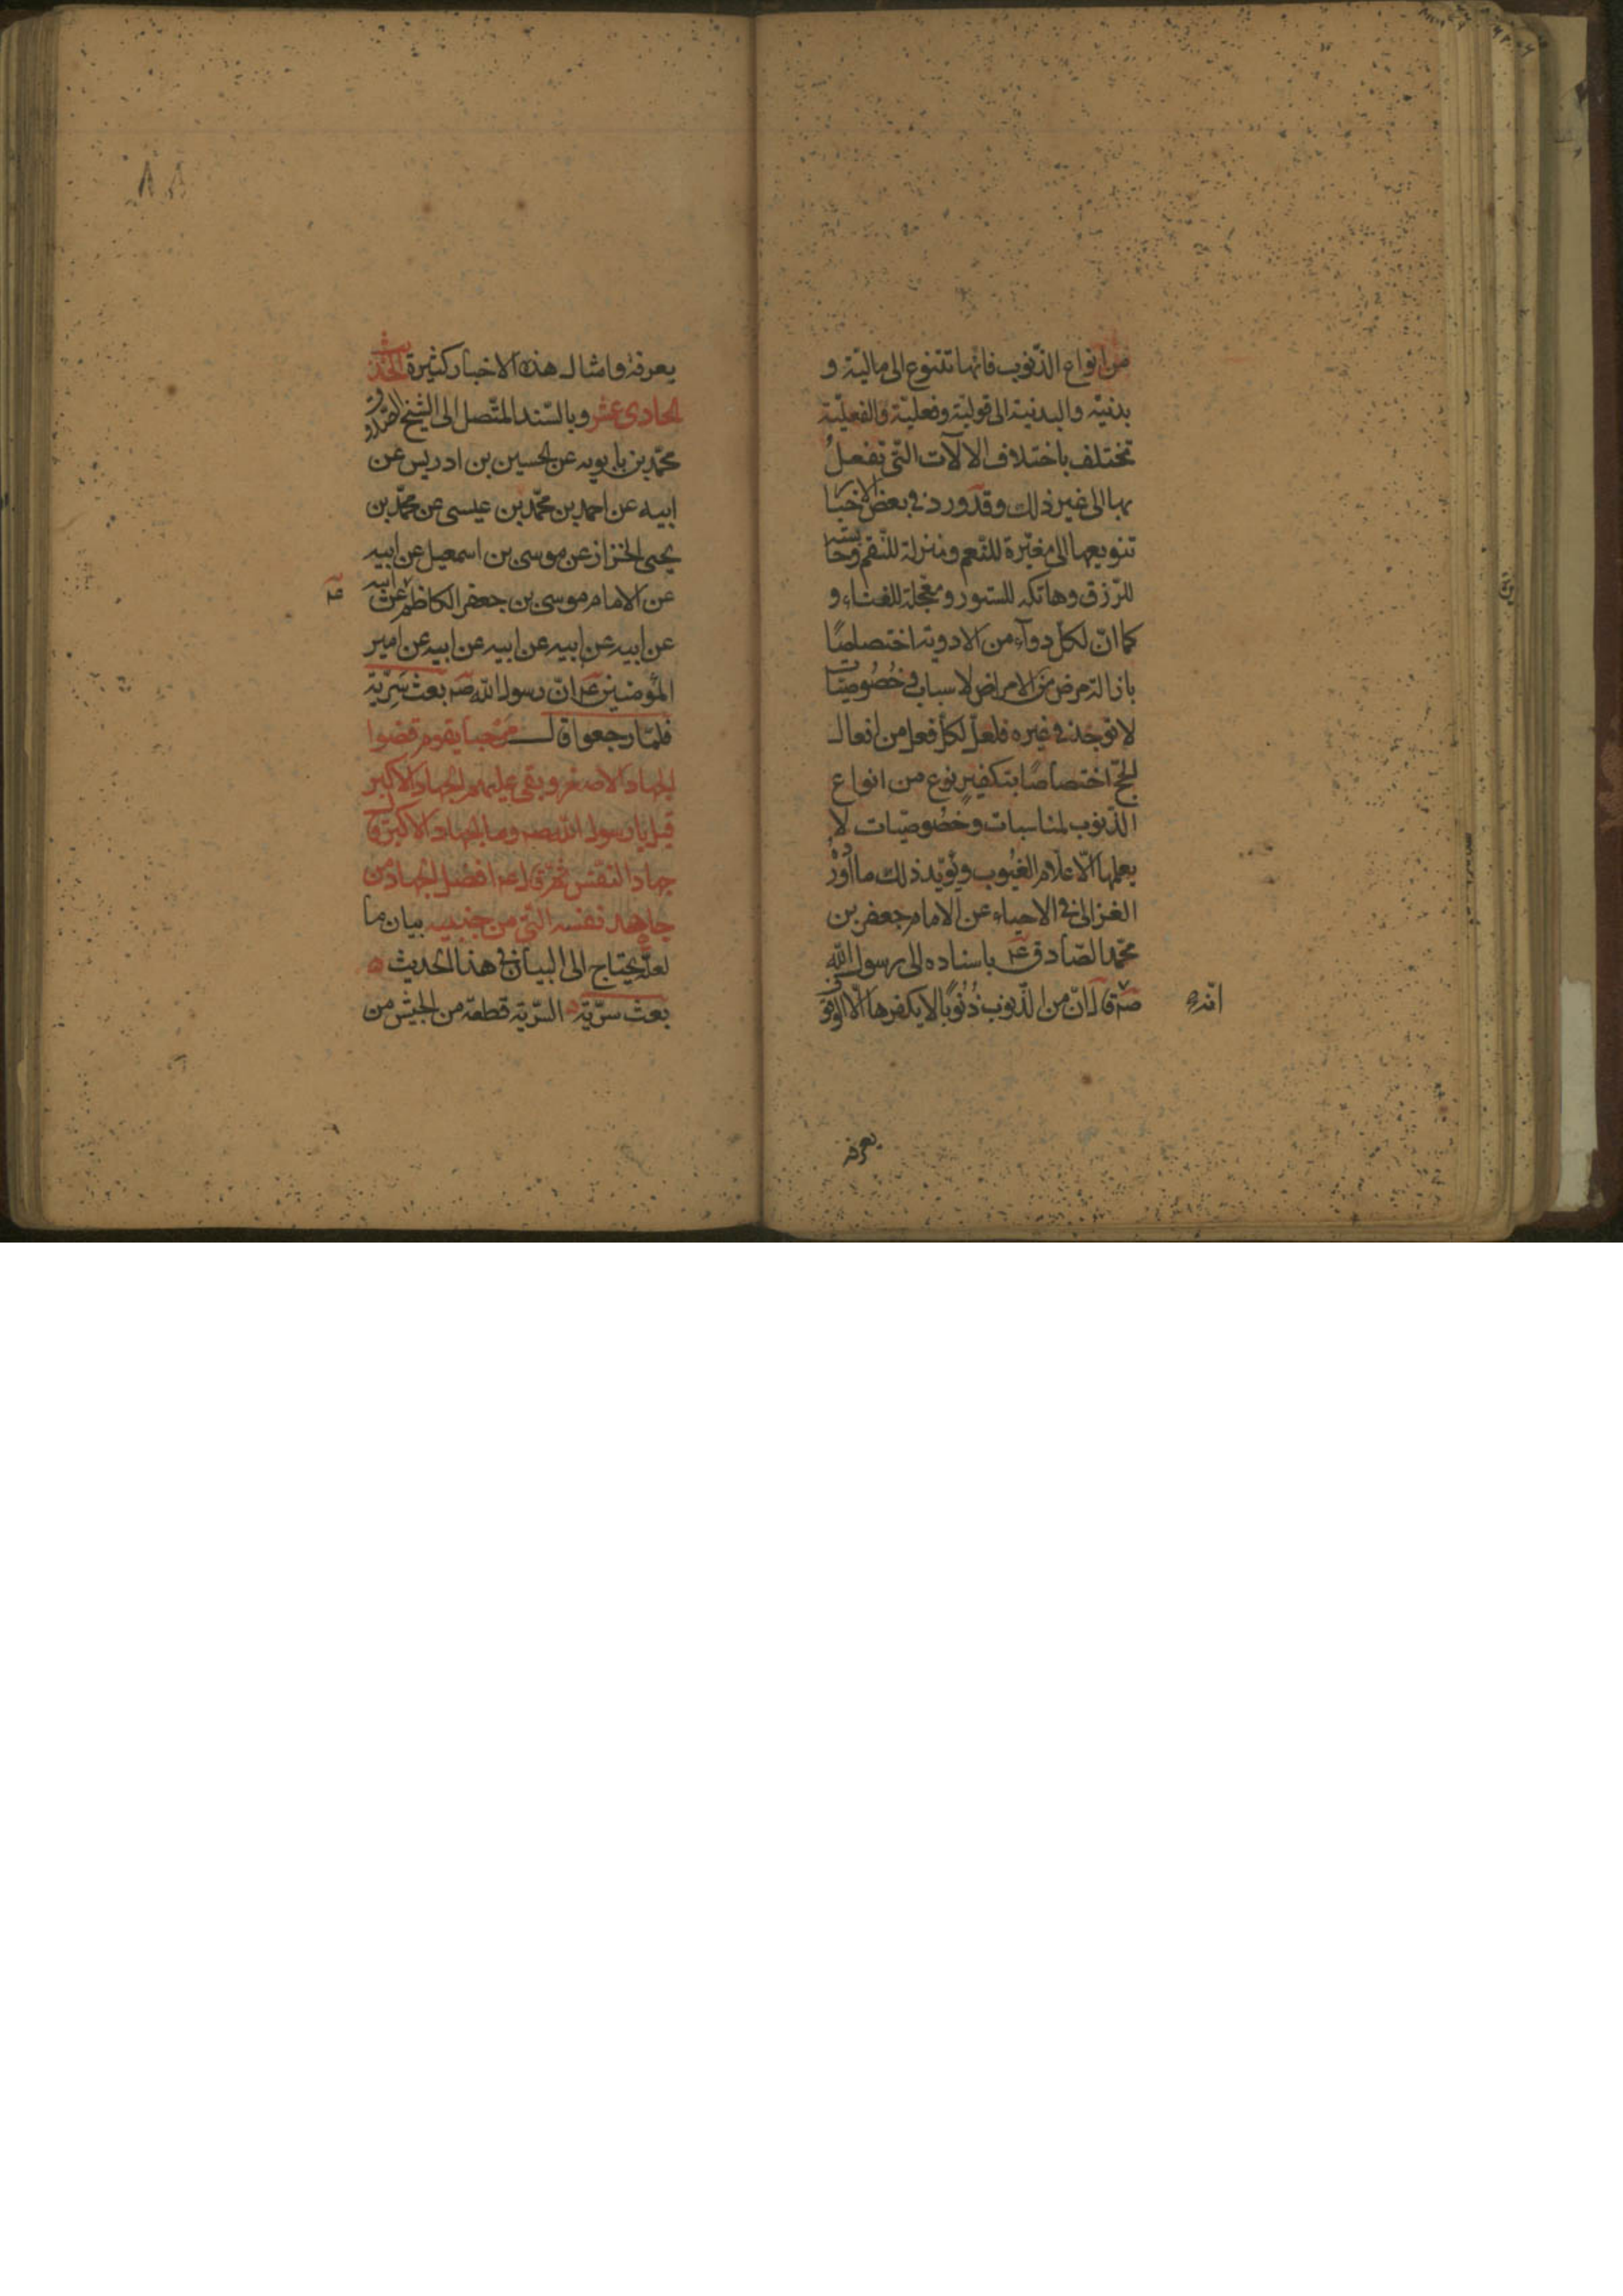 من انواع الذّنوب فانّها تتنوع الى ماليّة و
بدنيّه والبدنية الى قوليّة وفعليّة والفعليّة
تختلف باختلاف الالآت التى تفعل
بها الى غير ذلك وقد ورد فى بعض الاخبار
تنويعها الى مغيّرة للنّعم ومنزلة للنّقم وحابسته
للرّزق وهاتكه للستور و معجّلة للفناء و
كما انّ لكل دوآء من الادوية اختصاصًا
بازالة مرض من الامراض لاسباب وخُصُوصيّات
لا توجد فى غيره فلعلّ لكل فعل من افعال
الحجّ اختصاصًا بتكفير نوع من انواع
الذّنوب لمناسبات وخُصُوصيّات لا
يعلمها الّا علّام الغيُوب ويؤيّد ذلك ما اورد
الغزالى فى الاحياء عن الامام جعفر بن
محمّد الصّادق عـ باسناده الى رسول الله
صـ قال انّ من الذّنوب ذُنُوبًا لا يكفرها الّا الوقوف
يعرفة
يعرفة وامثال هذه الاخبار كثيرة الحديث
الحادى عشر وبالسّند المتّصل الى الشيخ الصّدوق
محمّد بن بابويه عن الحسين بن ادريس عن
ابيه عن احمد بن محمّد بن عيسى عن محمّد بن
يحيى الخزاز عن موسى بن اسمعيل عن ابيه
عن الامام موسى بن جعفر الكاظم عن ابيه
عن ابيه عن ابيه عن ابيه عن ابيه عن امير
المؤمنين عـ انّ رسول الله صـ بعث سَرِيّة
فلمّا رجعوا قال مَرْحبا بقوم قضوا
الجهاد الاصغر وبقى عليهم الجهاد الاكبر
قيل يا رسول الله صـ وما الجهاد الاكبر قال
جهاد النفس ثم قال عـ افضل الجهاد من
جاهد نفسه التى من جنبيه بيان ما
لعلّه يحتاج الى البيان فى هذا الحديث
بعث سرّيّة السّريّة قطعة من الجيش من